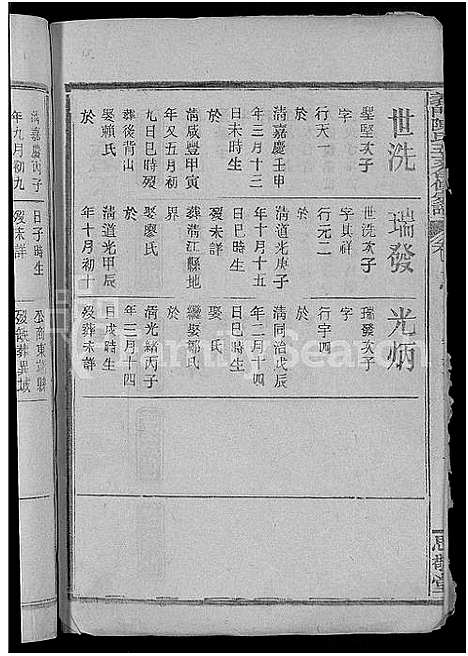 世洗
聖堅次子
字
行天一
清嘉慶壬申
年三月十三
日未時生
於
清咸豐甲寅
年又五月初
九日巳時歿
葬後背山
娶賴氏
於
清嘉慶丙子
年九月初九
瑞發
世洗次子
字其祥
行元二
清道光庚子
年十月十五
日巳時生
於
歿未詳
葬清江縣地
界
娶廖氏
於
清道光甲辰
年十月初十
日子時生
歿未詳
光炳
瑞發次子
字
行宇四
清同治戊辰
年二月十四
日巳時生
於
娶 氏
繼娶鄒氏
於
清光緒丙子
年三月十四
日戌時生
歿葬未詳
歿俱葬異域
思敬堂
FamilySearch